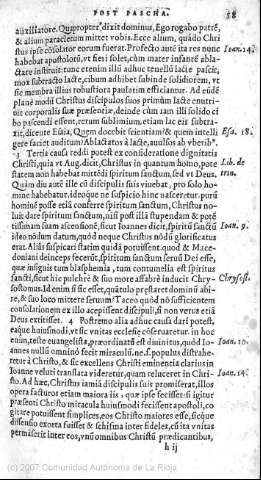 POST PASCHA. 58
auxiliatore. Quapropter, dixit dominus, Ego rogabo patrē,
& alium paracletum mittet vobis. Ecce alium, quādo Chri
stus ipse cōsolator eorum fuerat. Profecto autē ita res nunc Ioan. 14.
habebat apostolorū, vt fieri solet, cùm mater infantē ablactare
instituit: tunc etenim illū adhuc tenellū lacte pascit,
mox subtracto lacte, cibum adhibet subinde solidiorem, vt
sic membra illius robustiora paulatim efficiantur. Ad eūdē
planè modū Christus discipulos suos primùm lacte enutrivit
corporalis suæ præsentiæ, deinde cùm iam illi solido cibo
pascendi essent, rerum sublimium, etiam lac eis subtraxit,
dicente Esaia, Quem docebit scientiam? & quem intelligere Esa. 28.
faciet auditum? Ablactatos à lacte, auulsos ab vberib⁹.
3 Tertia causa reddi potest ex consideratione dignitatis
Christi, quia vt Aug. dicit, Christus in quantum homo, potestatem Lib. de
non habebat mittēdi spiritum sanctum, sed vt Deus. trin.
Quàm diu autē ille cū discipulis suis viuebat, pro solo homine
habebatur, ideoque ne suspicio hinc nasceretur purū
hominē posse etiā conferre spiritum sanctum, Christus noluit
dare spiritum sanctum, nisi post illā stupendam & potētissimam
suam ascensionē, sicut Ioannes dicit, spiritū sanctū Ioann. 7.
ideo nōdum datum, quòd neque Christus nōdū glorificatus
erat. Alius suspicari statim quidā potuissent, quod & Macedoniani
deinceps fecerūt, spiritum sanctum seruū Dei esse,
quæ insignis tum blasphemia, tum contumelia est spiritus
sancti, sicut hîc pulchrè & suo more affabrè inducit Chrysostomus. Chrysost.
Idem si sic esset, quātulo præstaret domini abitu,
& suo loco mittere seruum? Taceo quòd nō sufficientem
consolationem ex illo accepissent discipuli, si non verus etiā
Deus extitisset. 4 Postremo alia adhuc causa dari potest,
eaque huiusmodi, vt sic vnitas ecclesiæ cōseruaretur. in hoc
enim, teste euangelista, præordinatū est diuinitus, quòd Ioannes Ioan. 10.
nullū omninò fecit miraculū, ne. s. populus distraheretur
à Christo, & sic excellens Christi eminentia clarius in
Ioanne veluti translata videretur, quàm reluceret in Christo. Ioan. 14.
Ad hæc, Christus iamiā discipulis suis promiserat, illos
opera facturos etiam maiora iis, quæ ipse fecisset: si igitur
præsente Christo miracula huiusmodi fecissent apostoli, cogitare
potuissent simplices, eos Christo maiores esse, sicque
dissensio exorta fuisset & schisma inter fideles, cū ita vnitas
permiserit inter eos, vnū omnibus Christū prædicantibus,
h ij
(c) 2007 Comunidad Autónoma de La Rioja